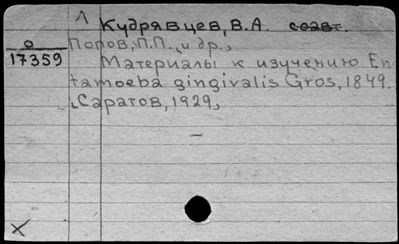 1
Кудрявцев, В.А. соавт.
О
17359
Попов, П.П., и др.,
Материалы к изучению En
tamoeba gingivalis Gros, 1849.
Саратов, 1929,
X